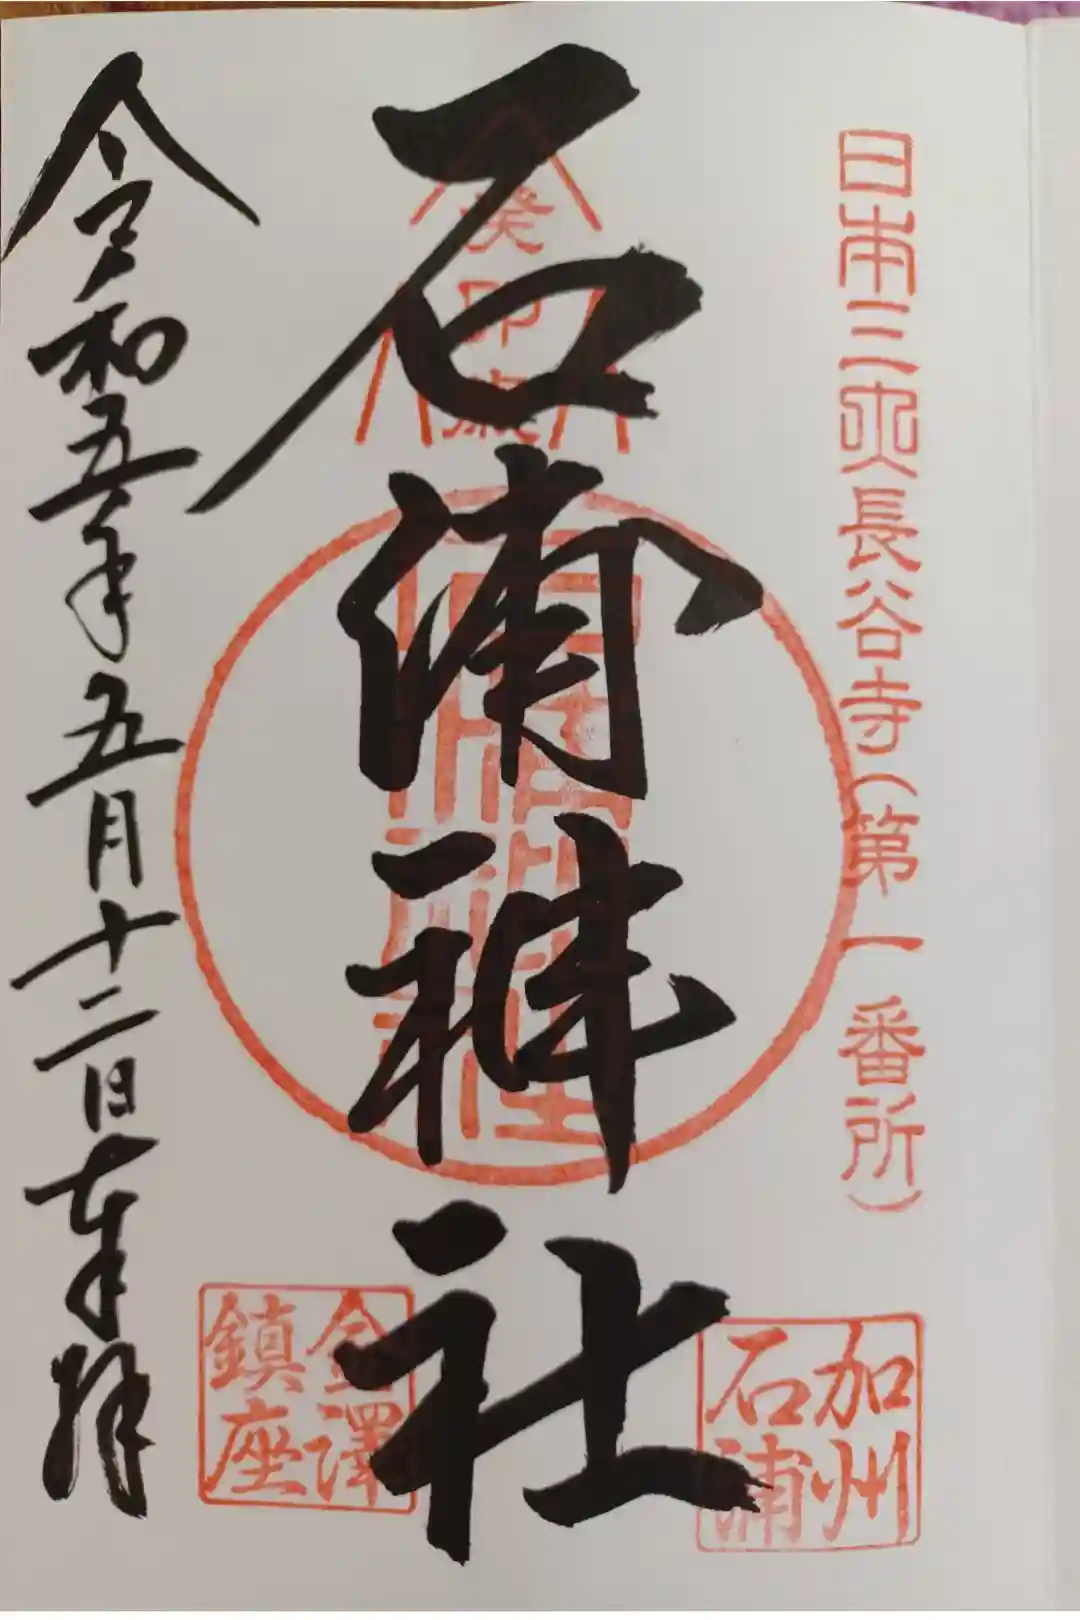 日本三大長谷寺（第一番所）
加州
石浦
癸卯歳
石浦神社
金澤
鎮座
令和五年五月十二日奉拝